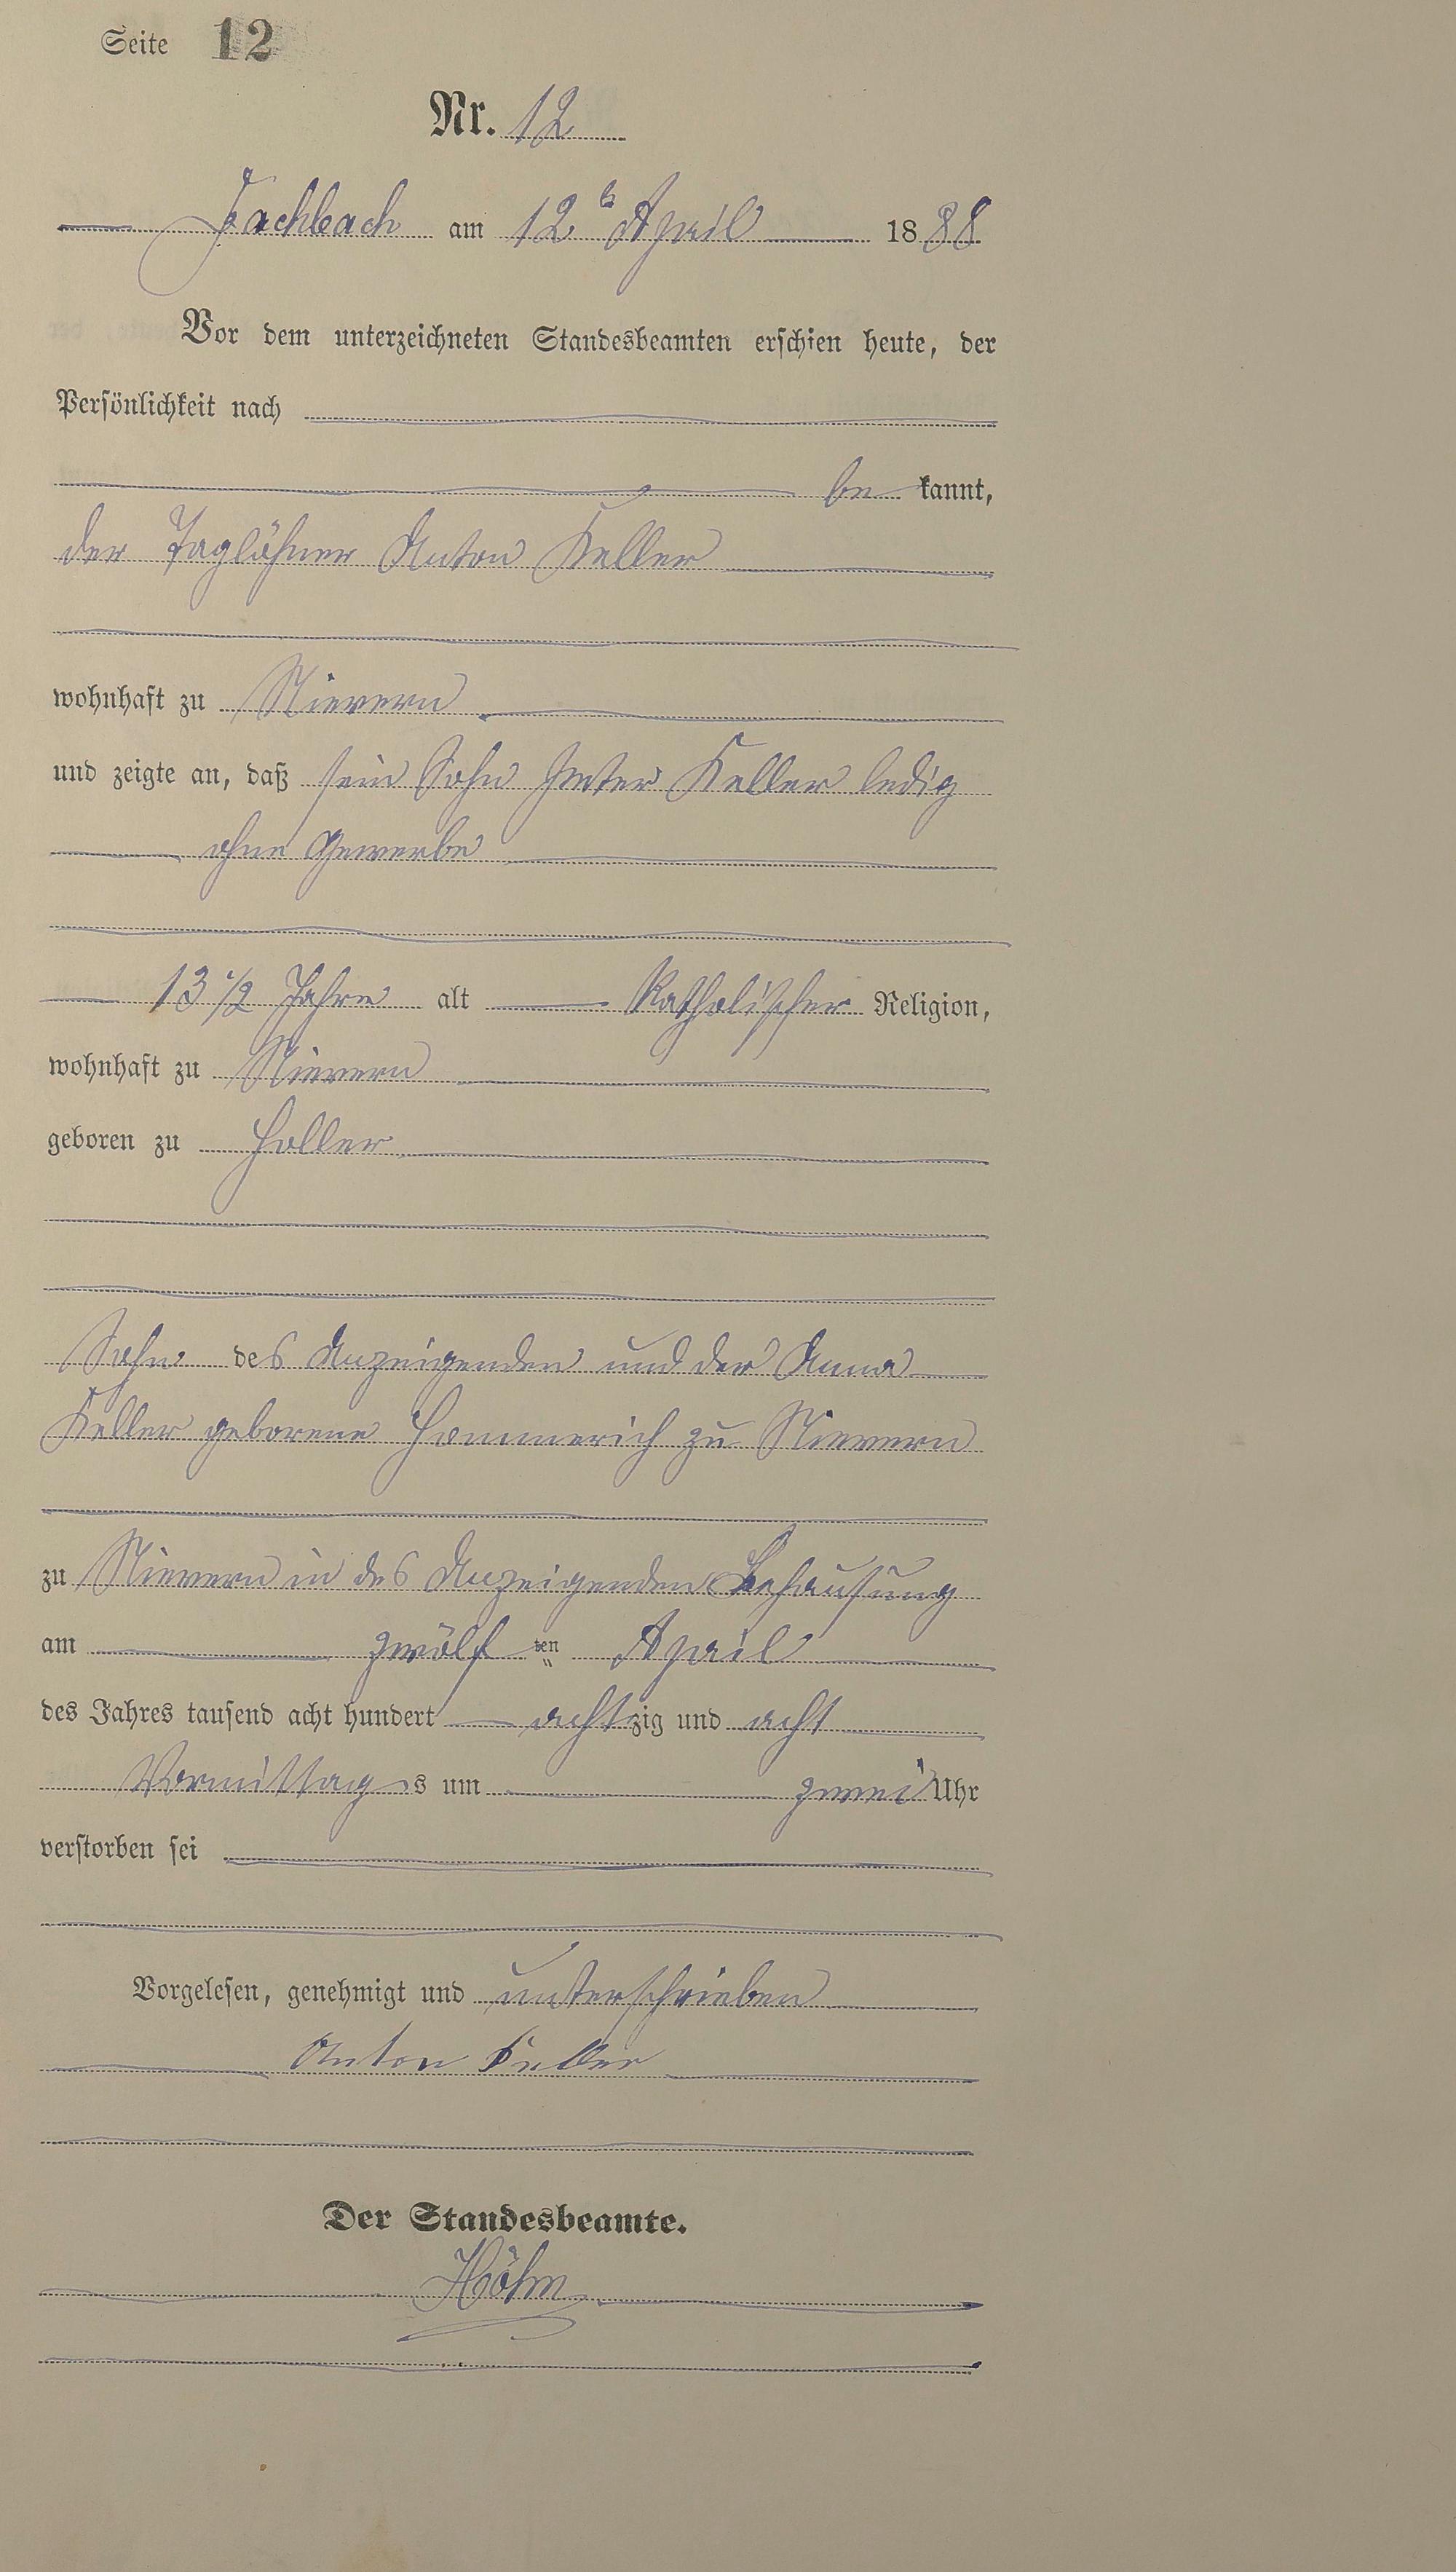 Seite 12
Nr. 12
Fachbach am 12ts April 1888
Vor dem unterzeichneten Standesbeamten erschien heute, der
Persönlichkeit nach
be kannt,
der Taglöhner Anton Keller
wohnhaft zu Nievern
und zeigte an, daß sein Sohn Peter Keller ledig
ohne Gewerbe
13 1/2 Jahre alt Katholischer Religion,
wohnhaft zu Nievern
geboren zu Holler
Sohn des Anzeigenden und der Anna
Keller geborene Hommerich zu Nievern
zu Nievern in des Anzeigenden Behausung
am zwölf ten April
des Jahres tausend acht hundert achtzig und acht
Vormittags um zwei Uhr
verstorben sei
Vorgelesen, genehmigt und unterschrieben
Anton Keller
Der Standesbeamte.
Höhn